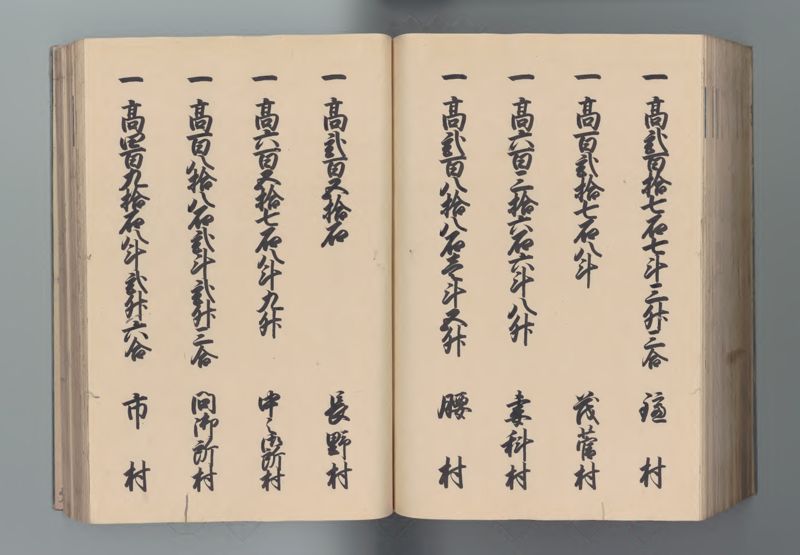 一 高弐百拾七石七斗三升三合 瑧村
一 高百弐拾七石八斗 茂菅村
一 高六百三拾六石六斗八升 妻科村
一 高弐百八拾八石壱斗五升 腰村
一 高弐百五拾石 長野村
一 高六百五拾七石八斗九升 中之御所村
一 高百八拾八石弐斗弐升三合 問御所村
一 高四百九拾石八斗弐升六合 市村